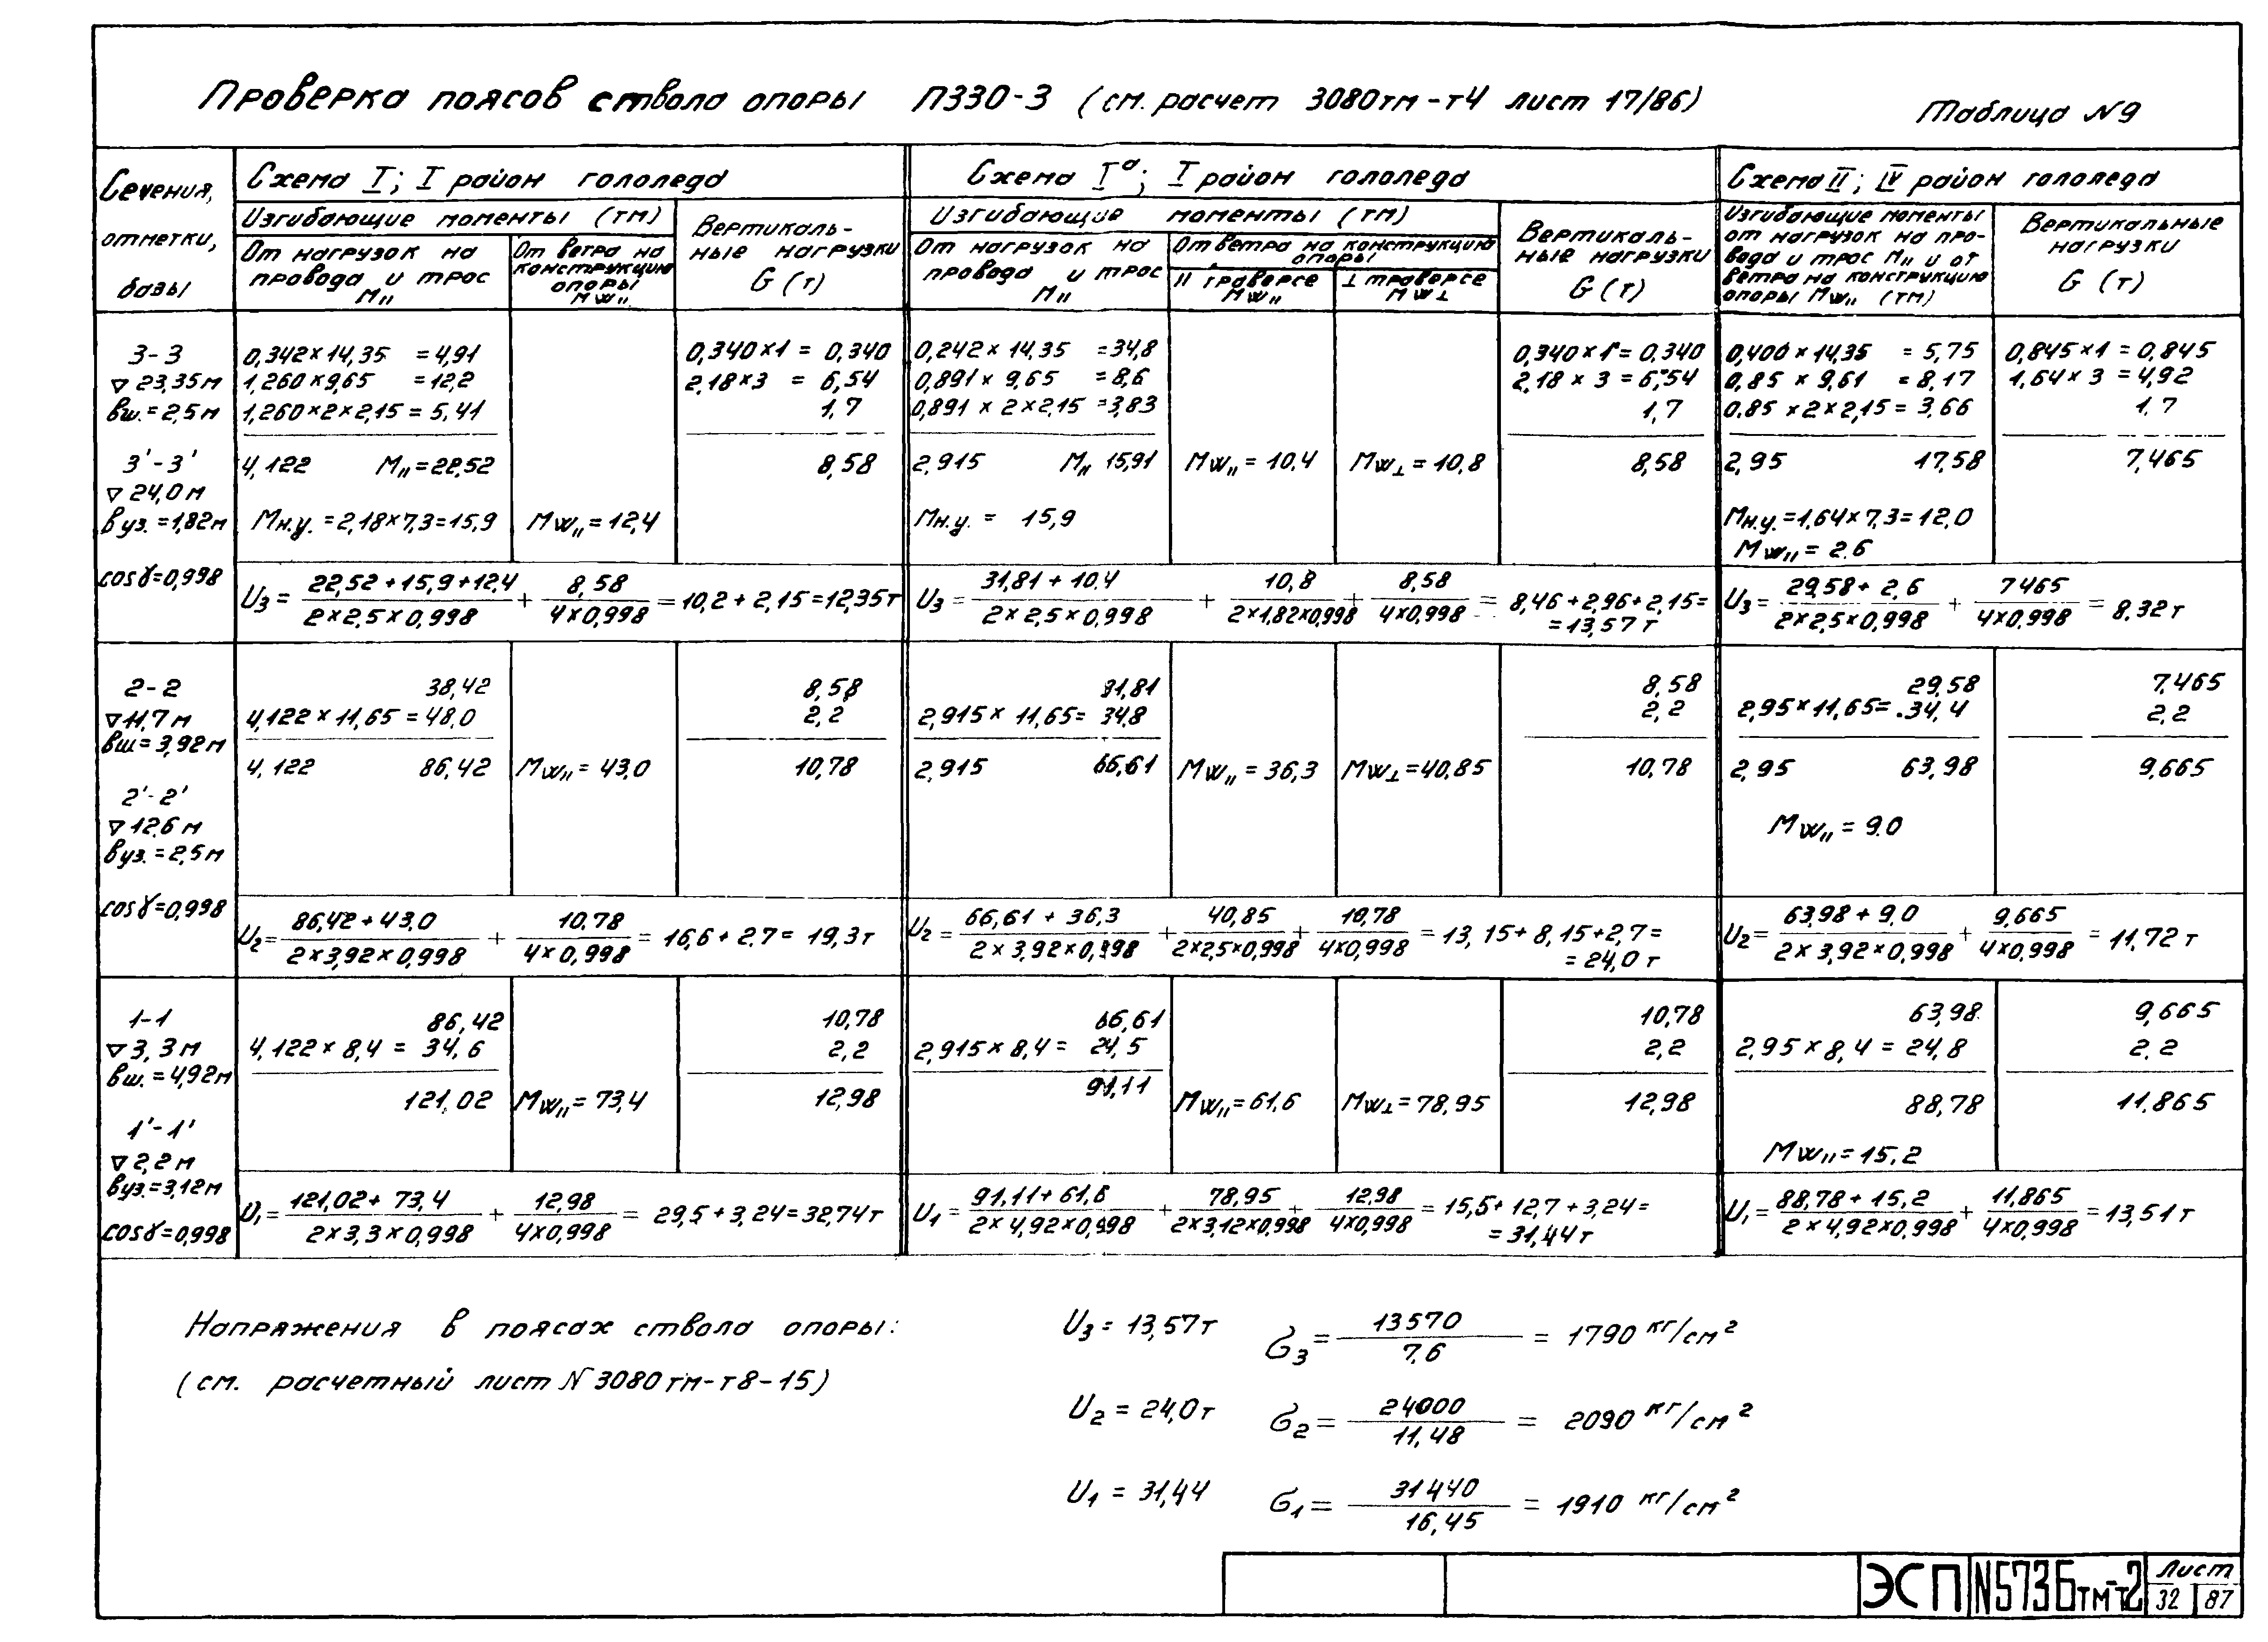 Проверка поясов ствола опоры П330-3 (см. расчет 3080тм-т4 лист 17/86)
Таблица №9
Сечения,
отметки,
базы
Схема I; I район гололеда
Изгибающие моменты (тм)
От нагрузок на
провода и трос
M||
От ветра на
конструкцию
опоры
MW||
Вертикаль-
ные нагрузки
G (т)
Схема Iа; I район гололеда
Изгибающие моменты (тм)
От нагрузок на
провода и трос
M||
От ветра на конструкцию
опоры
|| траверсе
MW||
⊥ траверсе
MW⊥
Вертикаль-
ные нагрузки
G (т)
Схема II; IV район гололеда
Изгибающие моменты
от нагрузок на про-
вода и трос M|| и от
ветра на конструкцию
опоры MW|| (тм)
Вертикальные
нагрузки
G (т)
3-3
▽ 23,35м
вш.=2,5м
3'-3'
▽ 24,0м
вуз.=1,82м
cosγ=0,998
0,342×14,35 = 4,91
1,260×9,65 = 12,2
1,260×2×2,15 = 5,41
4,122 M||=22,52
Mн.у.=2,18×7,3=15,9
MW||=12,4
0,340×1 = 0,340
2,18×3 = 6,54
1,7
8,58
0,242×14,35 =34,8
0,891×9,65 =8,6
0,891×2×2,15 =3,83
2,915 M|| 15,91
Mн.у. = 15,9
MW|| = 10,4
MW⊥ = 10,8
0,340×1 = 0,340
2,18×3 = 6,54
1,7
8,58
0,400×14,35 = 5,75
0,85×9,61 = 8,17
0,85×2×2,15 = 3,66
2,95 17,58
Mн.у.=1,64×7,3=12,0
MW||= 2.6
0,845×1 = 0,845
1,64×3 = 4,92
1,7
7,465
U3 = (22,52+15,9+12,4)/(2×2,5×0,998) + 8,58/(4×0,998) = 10,2+2,15=12,35т
U3 = (31,81+10.4)/(2×2,5×0,998) + 10,8/(2×1,82×0,998) + 8,58/(4×0,998) = 8,46+2,96+2,15=
=13,57т
U3 = (29,58+2,6)/(2×2,5×0,998) + 7465/(4×0,998) = 8,32т
2-2
▽11,7м
вш=3,92м
2'-2'
▽12,6м
вуз.=2,5м
cosγ=0,998
38,42
4,122×11,65=48,0
4,122 86,42
MW||= 43,0
8,58
2,2
10,78
31,81
2,915×11,65= 34,8
2,915 66,61
MW||= 36,3
MW⊥=40,85
8,58
2,2
10,78
29,58
2,95×11,65= 34,4
2,95 63,98
MW||= 9.0
7,465
2,2
9,665
U2= (86,42+43,0)/(2×3,92×0,998) + 10,78/(4×0,998) = 16,6+2,7= 19,3т
U2= (66,61+36,3)/(2×3,92×0,998) + 40,85/(2×2,5×0,998) + 10,78/(4×0,998) = 13,15+8,15+2,7=
= 24,0т
U2= (63,98+9,0)/(2×3,92×0,998) + 9,665/(4×0,998) = 11,72т
1-1
▽3,3м
вш.=4,92м
1'-1'
▽2,2м
вуз.=3,12м
cosγ=0,998
86,42
4,122×8,4 = 34,6
121,02
MW||= 73,4
10,78
2,2
12,98
66,61
2,915×8,4= 24,5
91,11
MW||=61,6
MW⊥=78,95
10,78
2,2
12,98
63,98
2,95×8,4 = 24,8
88,78
MW||=15,2
9,665
2.2
11.865
U1= (121,02+73,4)/(2×3,3×0,998) + 12,98/(4×0,998) = 29,5+3,24=32,74т
U1= (91,11+61,6)/(2×4,92×0,998) + 78,95/(2×3,12×0,998) + 12,98/(4×0,998) = 15,5+12,7+3,24=
= 31,44т
U1= (88,78+15,2)/(2×4,92×0,998) + 11,865/(4×0,998) = 13,51т
Напряжения в поясах ствола опоры:
(см. расчетный лист №3080тм-т8-15)
U3 = 13,57т σ3= 13570/7.6 = 1790 кг/см²
U2 = 24,0т σ2= 24000/11,48 = 2090 кг/см²
U1 = 31,44 σ1= 31440/16,45 = 1910 кг/см²
ЭСП N5736тм-т2
Лист
32 87